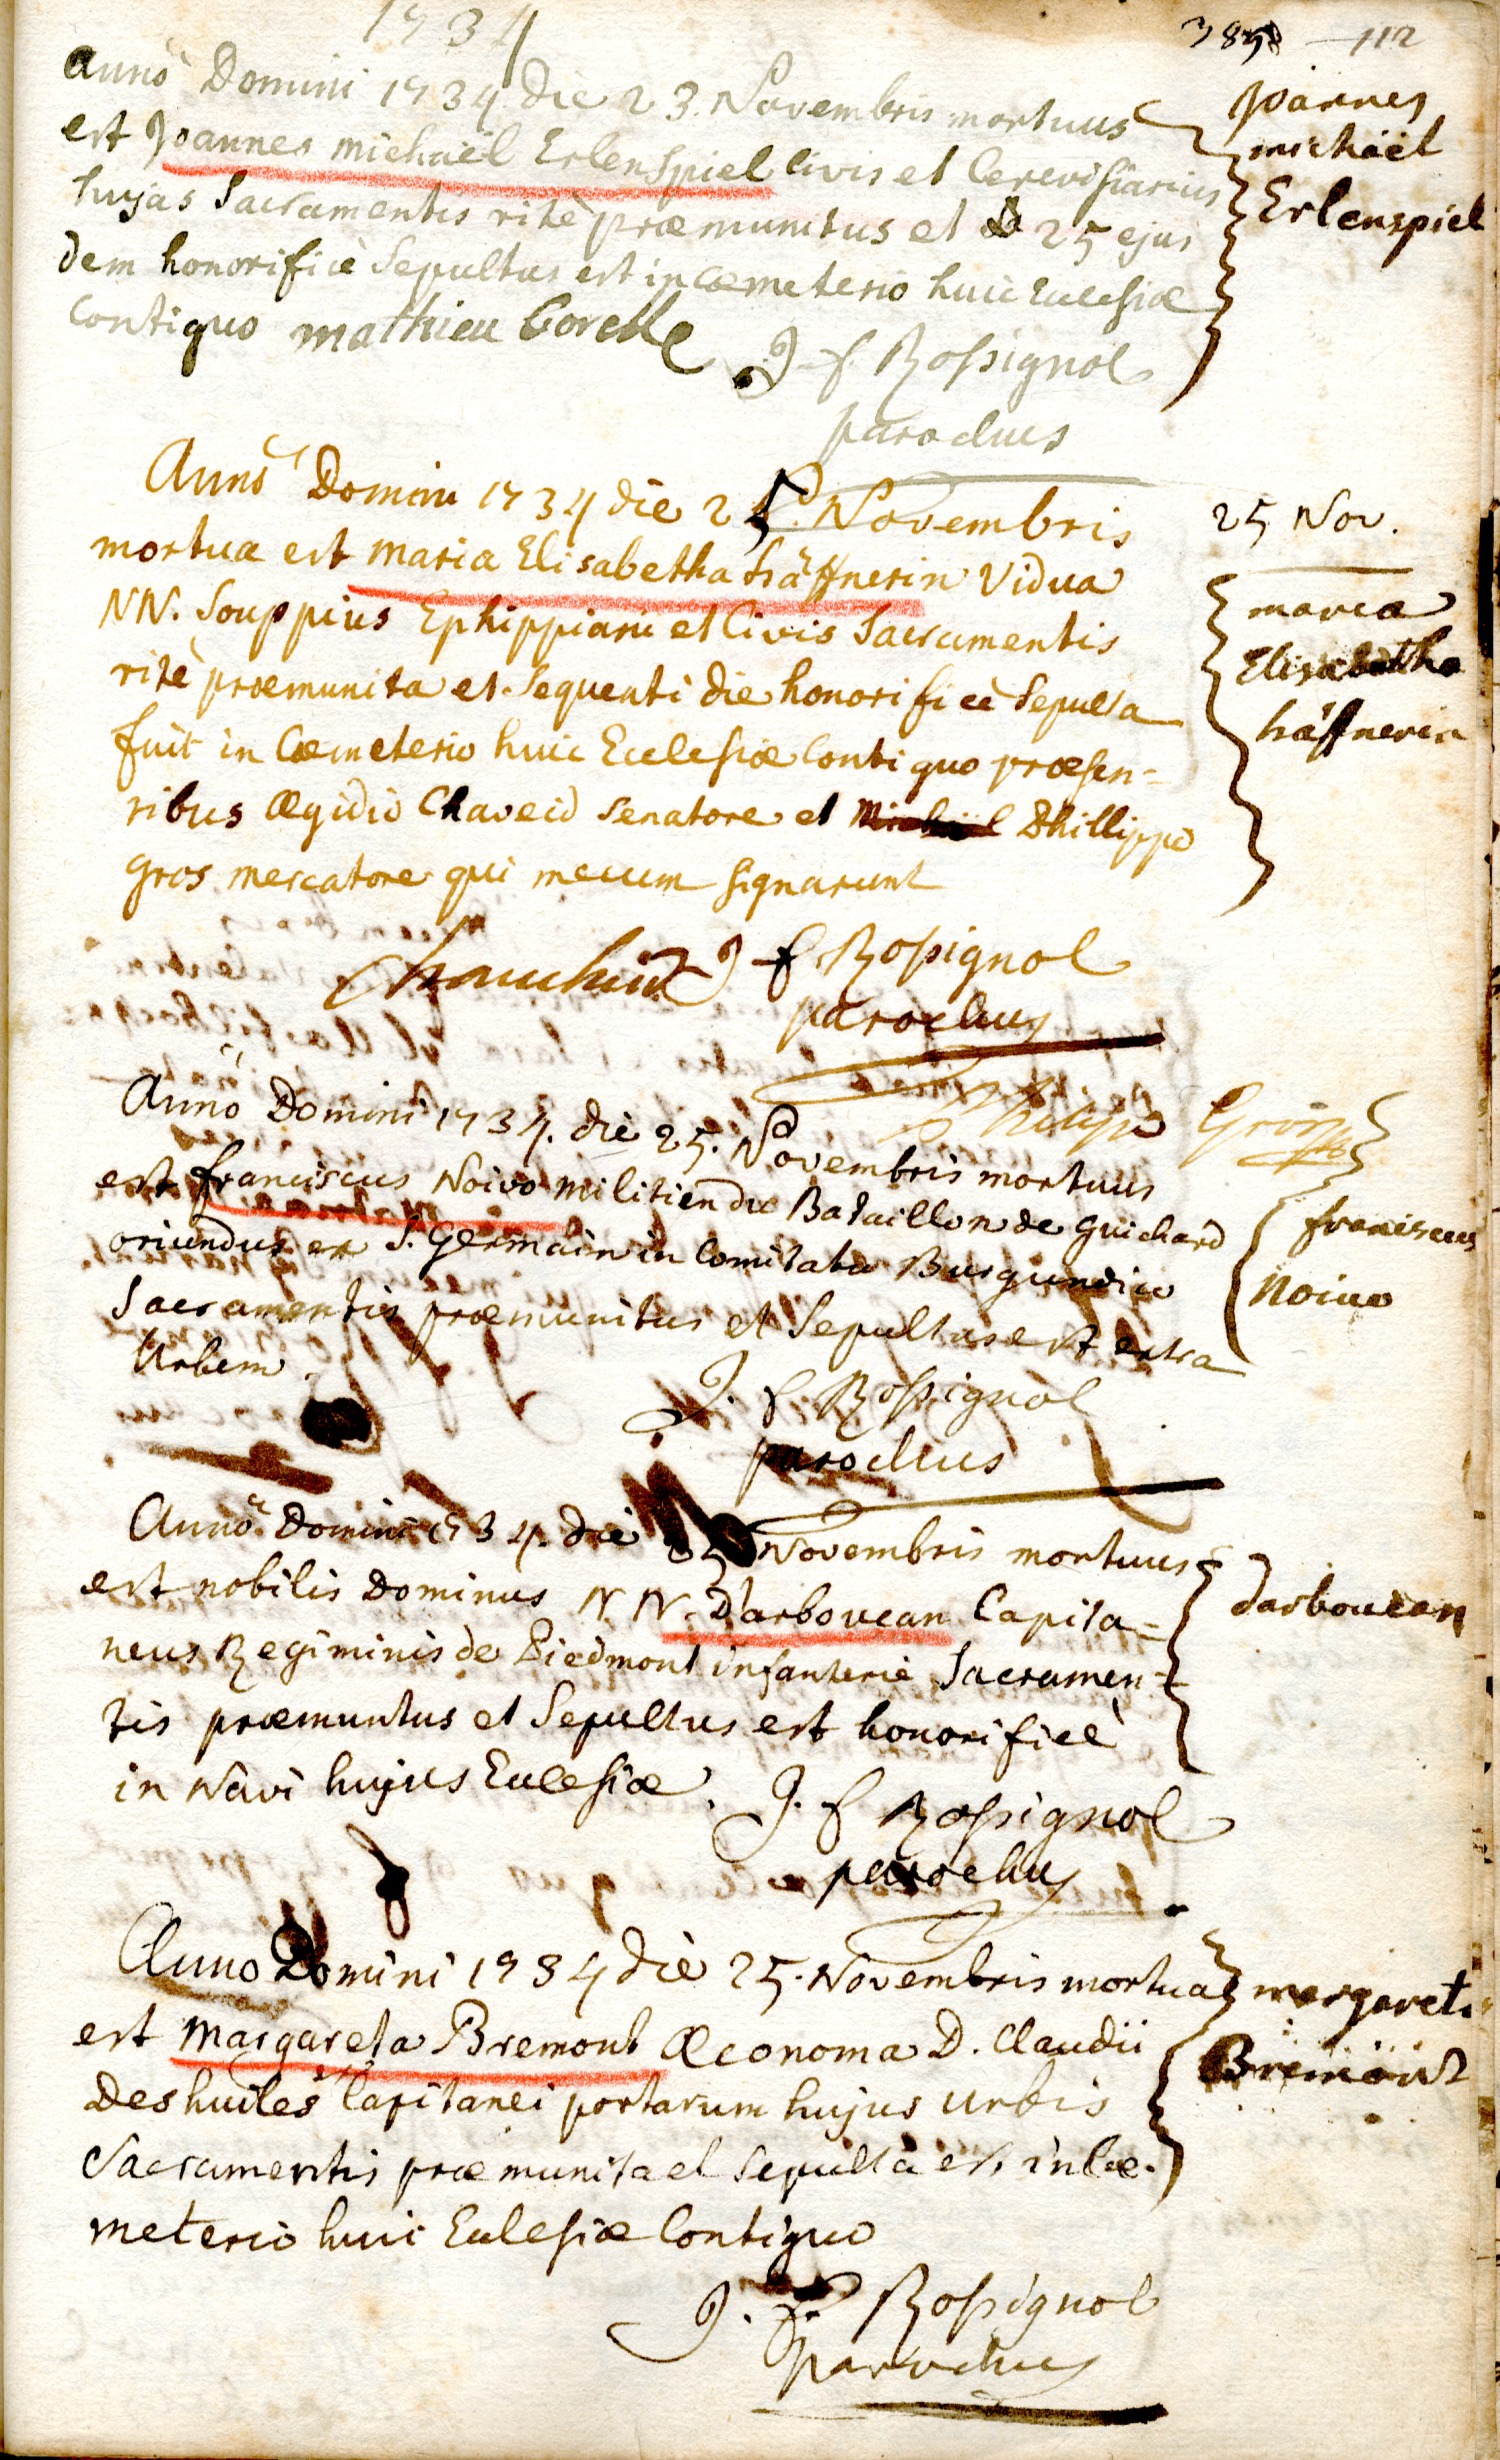 1734
112
Anno Domini 1734 die 23. Novembris mortuus
est Joannes michaël Erlenspiel civis et Cerevisiarius
hujas Sacramentis ritè præmunitus et 25 ejus
dem honorificè Sepultus est in Cœmeterio huic Ecclesiæ
Contiguo mathieu
J f Rossignol
parochus
Joannes
michaël
Erlenspiel
Anno Domini 1734 die 25. Novembris
mortua est Maria Elisabetha häffnerin Vidua
NN. Souppius Ephippiarii et Civis Sacramentis
ritè præmunita et Sequenti die honorificè Sepulta
fuit in Cœmeterio huic Ecclesiæ Contiguo præsen-
tibus Ægidio Chaveid Senatore et Phillippo
Gros mercatore qui mecum signarunt
J f Rossignol
parochus
25 Nov.
maria
Elisabetha
häffnerin
Philipp
Anno Domini 1734. die 25. Novembris mortuus
est franciscus Noivo militien du Bataillon de Guichard
oriundus ex S. Germain in Comitatu Burgundiæ
Sacramentis præmunitus et Sepultus est extra
Urbem.
J. f Rossignol
parochus
franciscus
Noivo
Anno Domini 1734. die 25 Novembris mortuus
est nobilis Dominus N. N. Darboucan Capita-
neus Regiminis de Piedmont infanterie Sacramen-
tis præmuntus et Sepultus est honorificè
in Navi hujus Ecclesiæ.
J. f Rossignol
parochus
Darboucan
Anno Domini 1734 die 25. Novembris mortua
est Margareta Bremont Œconoma D. Claudii
Deshuiles Capitanei portarum hujus Urbis
Sacramentis præmunita et Sepulta est in Cœ-
meterio huic Ecclesiæ Contiguo
J. f. Rossignol
parochus
margareta
Bremont